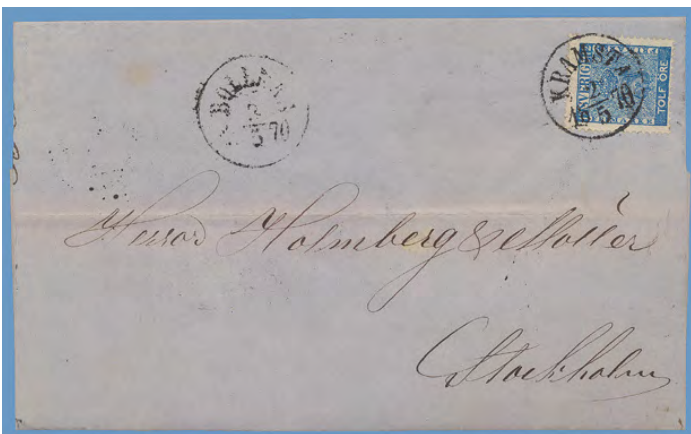 BOLLNÄS
2
5 70
KRAMSTA
2
5 70
SVERIGE
TOLF ÖRE
Herrar Holmberg & Möller
Stockholm